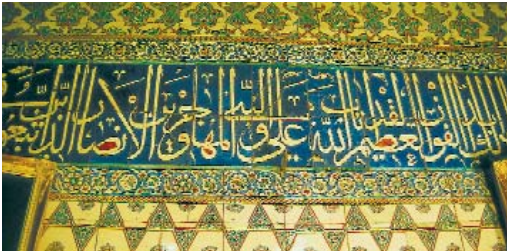 ابدا ذلك الفوز العظيم لقد تاب الله على النبي والمهاجرين والانصار الذين